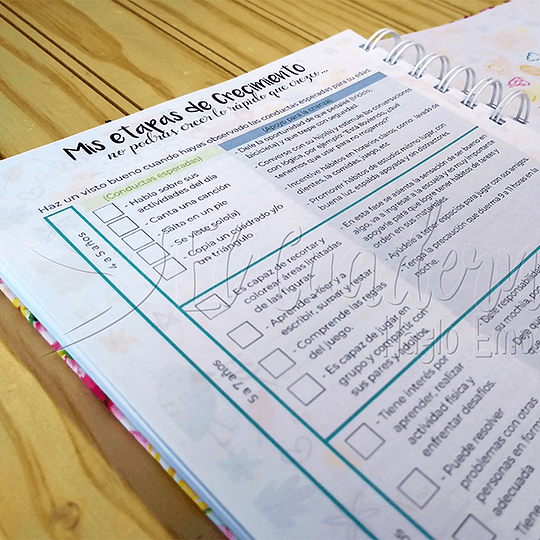 Mis etapas de Crecimiento
no podrás creer lo rápido que crezco...
Haz un visto bueno cuando hayas observado las conductas esperadas para su edad.
(Conductas esperadas)
(Apoyo para la crianza)
4 a 5 años
- Habla sobre sus
actividades del día
- Canta una canción
- Salta en un pie
- Se viste solo(a)
- Copia un cuadrado y/o
un triángulo
- Dele la oportunidad de que pedalee (triciclo,
bicicleta) y que trepe con seguridad.
- Converse con su hijo(a) y estimule las conversaciones
con lógica, por ejemplo, "Está lloviendo, ¿qué
tenemos que usar para no mojarnos?
- Incentive hábitos en horarios claros, como: lavado de
dientes, la comida, juego, etc.
- Promover hábitos de estudio mismo lugar con
buena luz, útiles ordenados y sin distractores.
5 a 7 años
- Es capaz de recortar y
colorear áreas limitadas
de las figuras
- Aprende a leer y a
escribir, sumar y restar.
- Comprende las reglas
del juego.
- Es capaz de jugar en
grupo y compartir con
sus pares y adultos.
- En esta fase se asienta la sensación de ser bueno en
algo, va a ingresar a la escuela y es muy importante
apoyarle para que logre tener hábitos de lavado y
orden en sus materiales.
- Ayúdele a tener espacios para jugar con los amigos.
- Tenga la precaución que duerma 9 a 11 horas en la
noche.
- Tiene interés por
aprender, realizar
actividad física y
enfrentar desafíos.
- Puede resolver
problemas con otras
personas en forma
adecuada
- Dele responsabilidad
su mochila,
Dele
que
Cuaderno
Hazlo